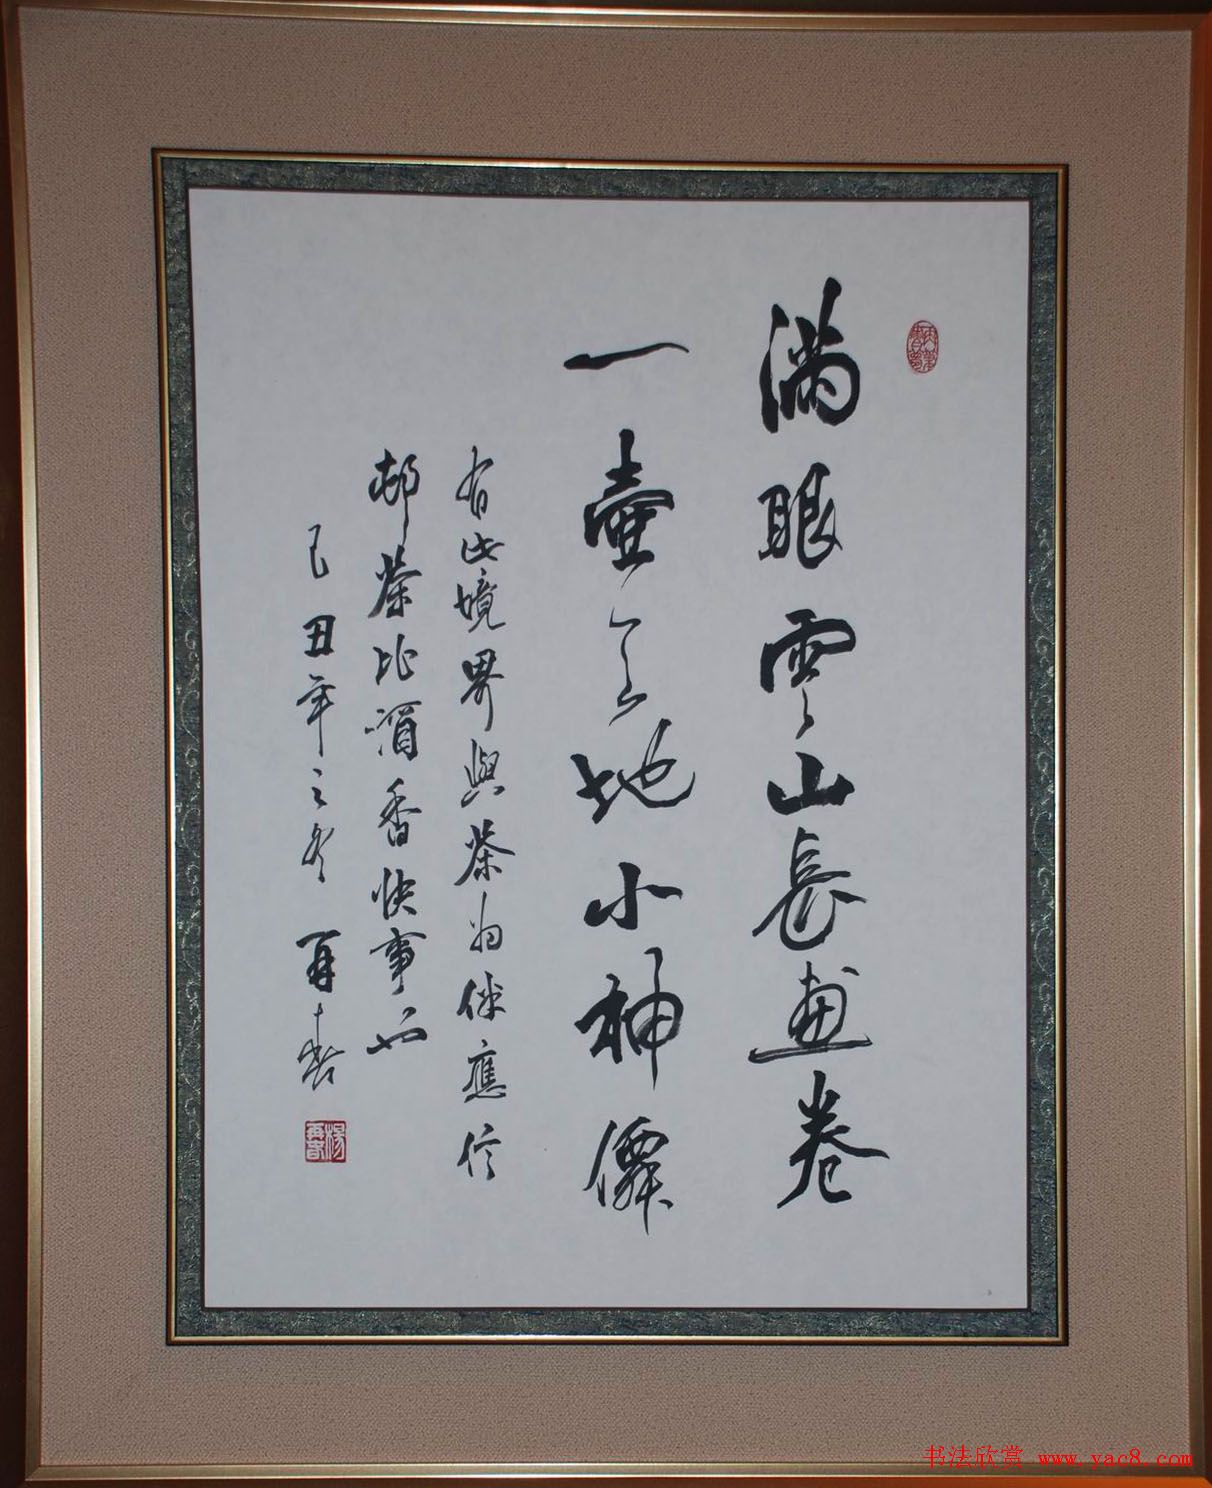 满眼雲山長畫卷
一壺天地小神僊
有此境界與茶為伴應信
村茶比酒香快事也
己丑年之冬 再春
楊再春
书法欣赏 www.yac8.com